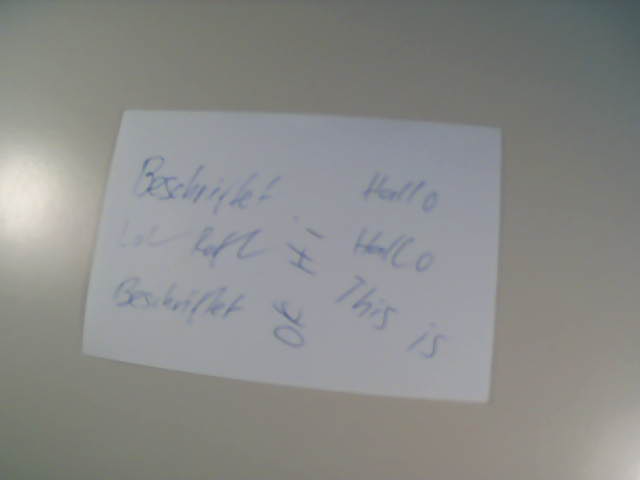 Beschriftet Hallo
Lol Rofl Hi Hallo
Beschriftet OK This is